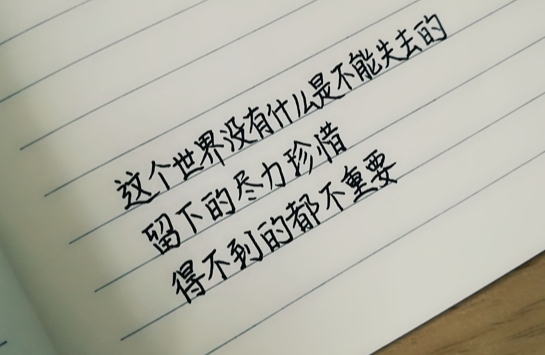 这个世界没有什么是不能失去的
留下的尽力珍惜
得不到的都不重要